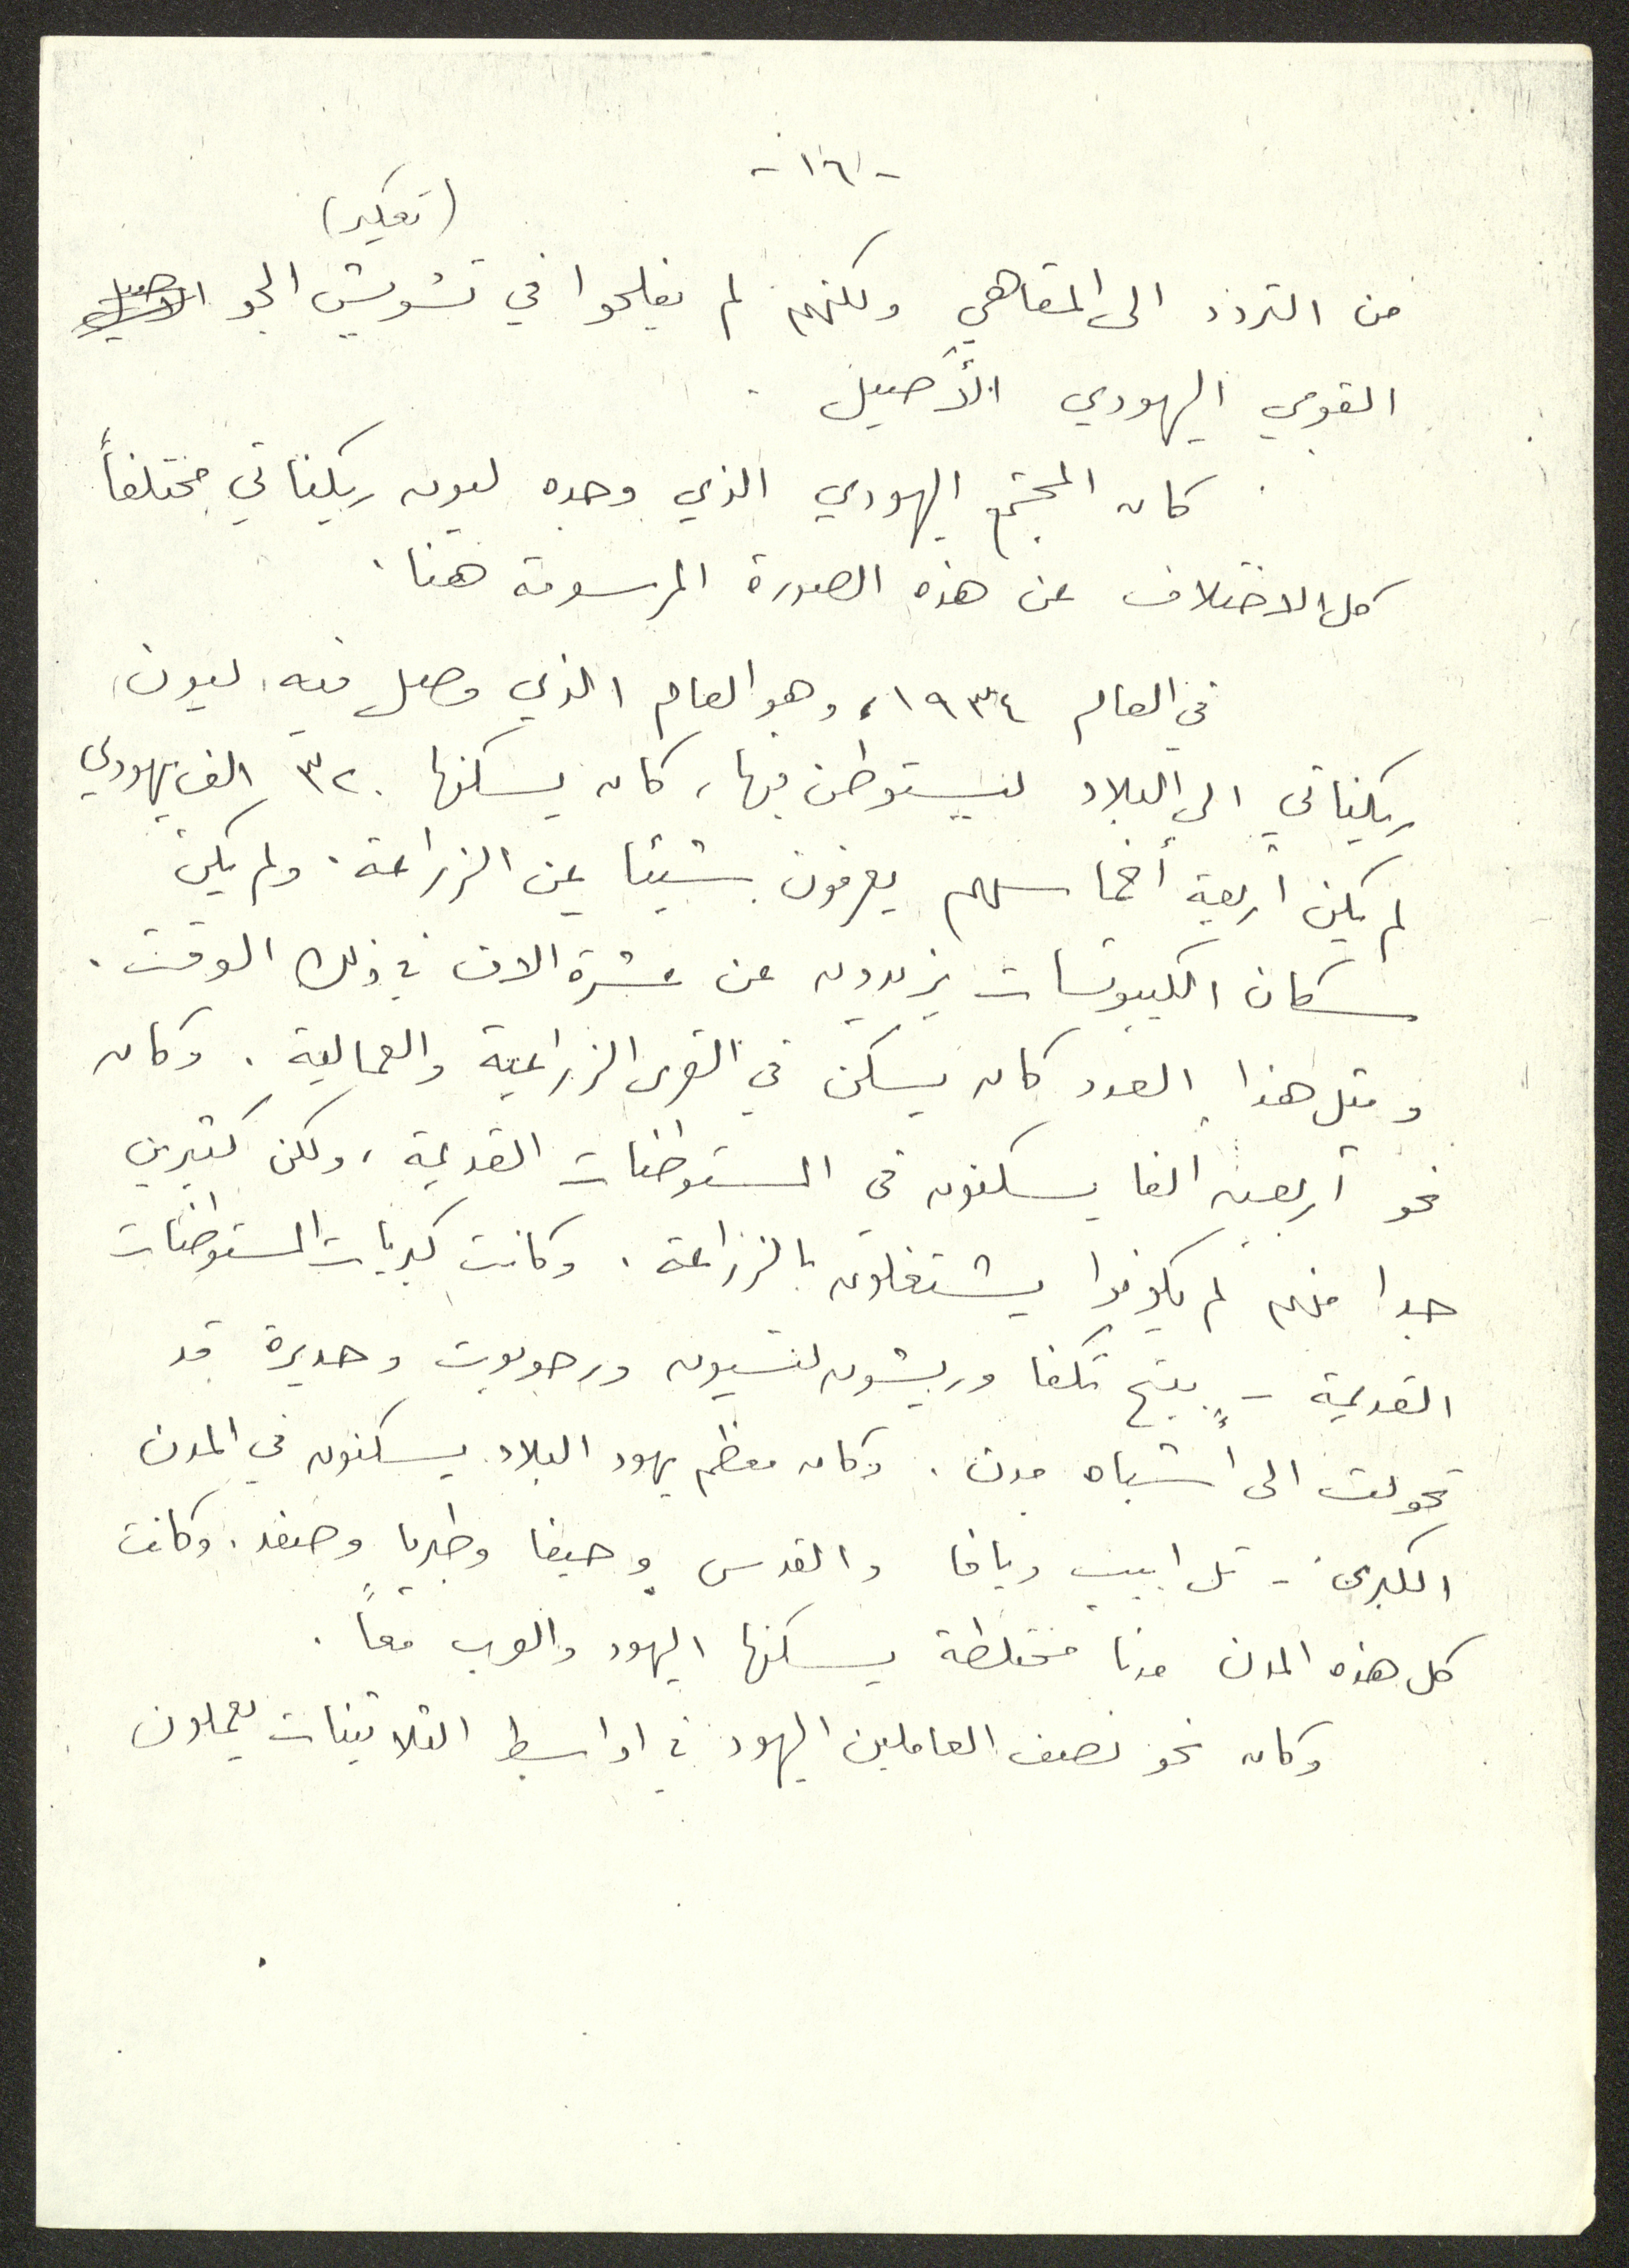 -١٦-
(تعكير)
من التردد الى المقاهي ولكنهم لم يفلحوا في تشويش الجو الاصيل
القومي اليهودي الأصيل .
كان المجتمع اليهودي الذي وجده ليون ريكناتي مختلفاً
كل الاختلاف عن هذه الصورة المرسومة هنا .
في العام ١٩٣٤، وهو العام الذي وصل فيه ليون
ريكناتي الى البلاد ليستوطن فيها، كان يسكنها ٣٢٠ الف يهودي
لم يكن أربعة أخماسهم يعرفون شيئا عن الزراعة . ولم يكن
سكان الكيبوتسات يزيدون عن عشرة الاف في ذلك الوقت .
ومثل هذا العدد كان يسكن في القرى الزراعية والعمالية . وكان
نحو أربعين الفا يسكنون في المستوطنات القديمة ، ولكن كثيرين
جدا منهم لم يكونوا يشتغلون بالزراعة . وكانت كبريات المستوطنات
القديمة - بيتح تكفا وريشون لتسيون ورحوبوت وحديرة قد
تحولت الى أشباه مدن . وكان معظم يهود البلاد يسكنون في المدن
الكبرى - تل ابيب ويافا والقدس وحيفا وطبريا وصفد . وكانت
كل هذه المدن مدنا مختلطة يسكنها اليهود والعرب معاً .
وكان نحو نصف العاملين اليهود في اواسط الثلاثينات يعملون